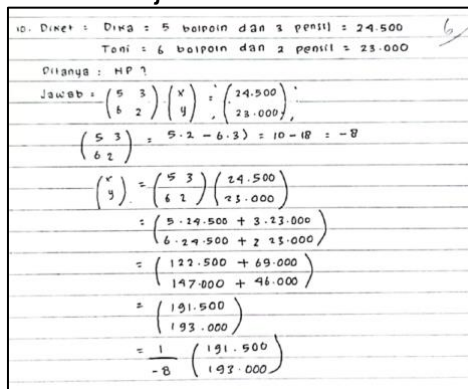 10. Diket = Dika = 5 bolpoin dan 3 pensil = 24.500 6
Toni = 6 bolpoin dan 2 pensil = 23.000
Ditanya : HP ?
Jawab = (5 3 / 6 2) . (x / y) = (24.500 / 23.000)
(5 3 / 6 2) = 5.2 - 6.3) = 10 - 18 = -8
(x / y) = (5 3 / 6 2) (24.500 / 23.000)
= (5 . 24.500 + 3.23.000 / 6 . 24.500 + 2 23.000)
= (122.500 + 69.000 / 147.000 + 46.000)
= (191.500 / 193.000)
= 1/-8 (191.500 / 193.000)